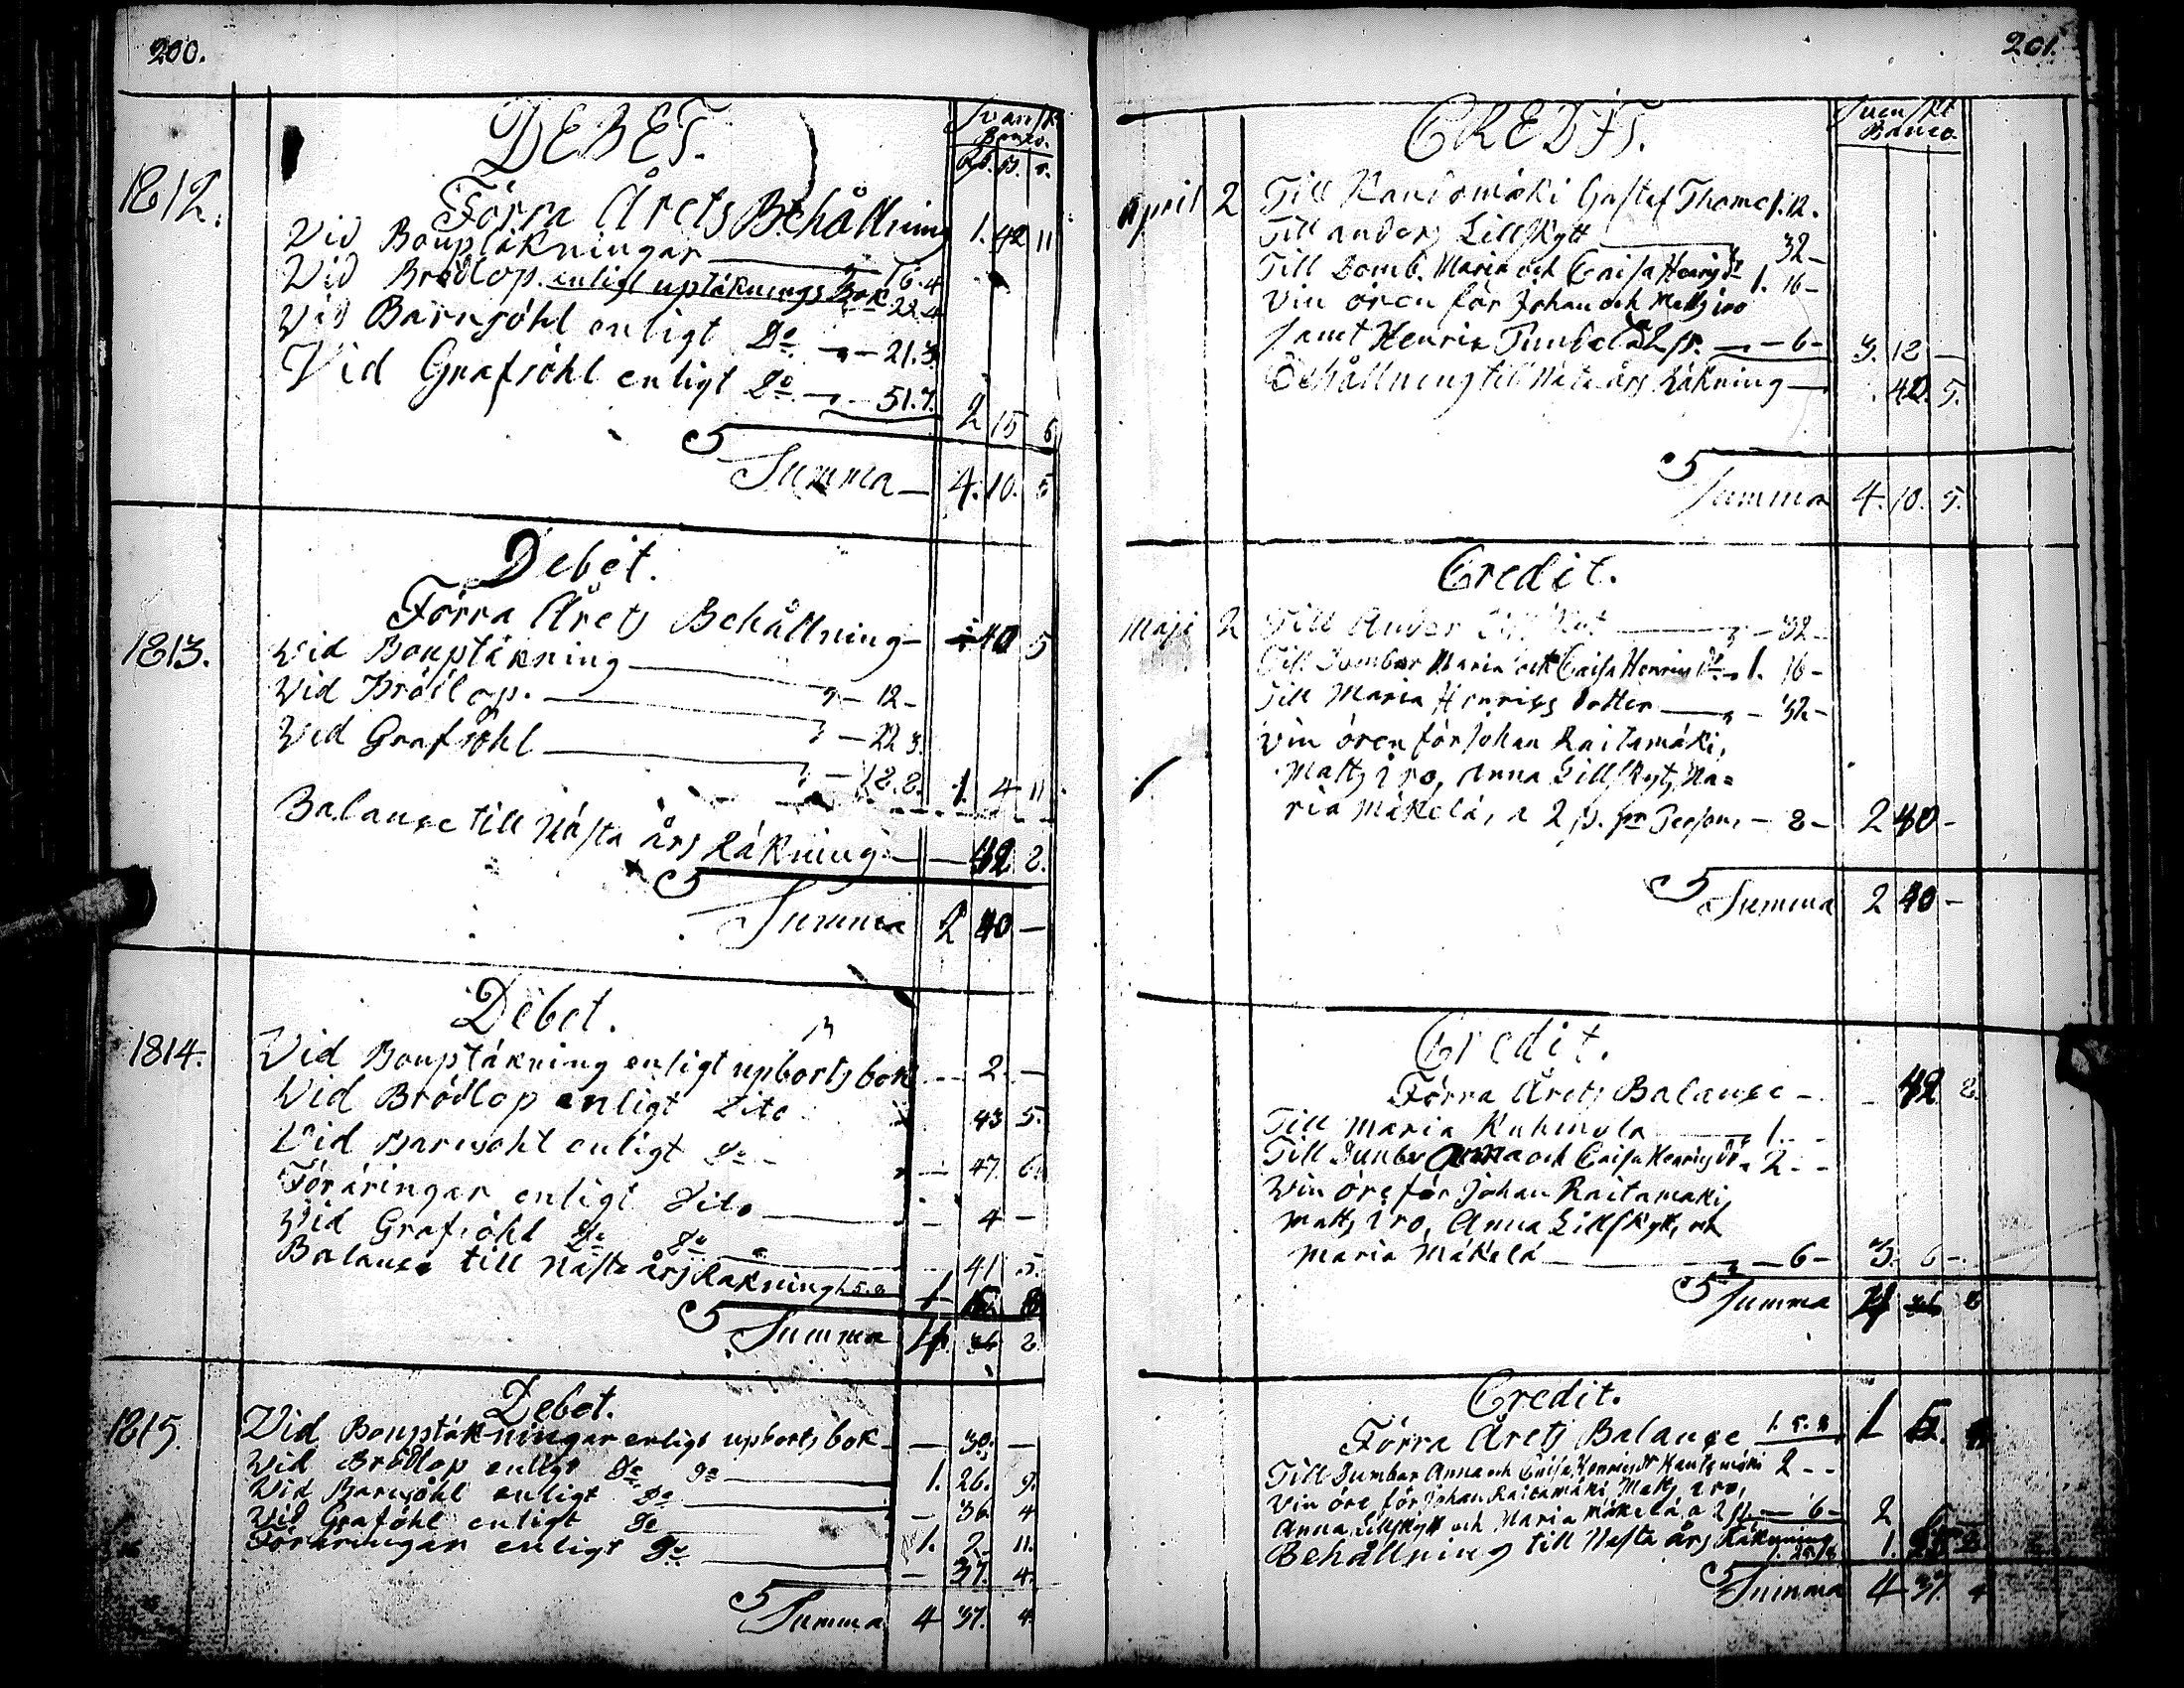 200.
DEBET.
Svenskt
Banco.
Rd. sk. r.
1812.
Förra Årets Behållning 1. 42 11
Vid Bouptäkningar 16.4
Vid Brödlop. enligt uptäknings Bok 22.4
Vid Barnsöhl enligt Do 21.3
Vid Grafsöhl enligt Do 51.7. 2 15 6
Summa 4. 10. 5
Debet.
1813.
Förra Årets Behållning 40 5
Vid Bouptäkning 12 -
Vid Brödlop. 22 3.
Vid Grafsöhl 18.8. 1. 4 11
Balance till Nästa års Räkning 42 8.
Summa 2 40 -
Debet.
1814.
Vid Bouptäkning enligt upbörts bok 2. -
Vid Brödlop enligt Dito 43 5.
Vid Barnsöhl enligt Do 47. 6.
Föräringar enligt Dito 4 -
Vid Grafsöhl Do Do 41 5.
Balance till Nästa års Räkning 1.5.8 1
Summa 4 36 2
Debet.
1815.
Vid Bouptäkningar enligt upbörts bok 30. -
Vid Brödlop enligt Do Do 1. 26. 9.
Vid Barnsöhl enligt Do 36 4
Vid Grafsöhl enligt Do 1. 2. 11.
Föräringar enligt Do 37. 4.
Summa 4 37. 4
201.
CREDIT.
Svenskt
Banco.
April 2 Till Gustaf Thomas 1.12.
Till anders Lillskytt 32 -
Till Domb. Maria och Caisa Henrics Dr 1. 16 -
Vin ören för Johan och Matts iro
samt Henric 2 sk. 6 - 3. 18 -
Behållning till Näta års Räkning 40. 5.
Summa 4. 10. 5.
Credit.
Maji 2 Till Ander 32 -
Till Dumbar Maria och Caisa Henrics Dr 1. 16 -
Till Maria Henrics dotter 32 -
Vin ören för Johan Raitamäki,
Matts iro, Anna Lillskyt, Ma=
ria Mäkelä, a 2 sk. pr Person 8 - 2 40 -
Summa 2 40 -
Credit.
Förra Årets Balance - 42 8.
Till Maria Kuhmola 1. - -
Till Dumbar Anna och Caisa Henrics Dr 2 - -
Vin öre för Johan Raitamäki
Matts iro, Anna Lillskytt, och
Maria Mäkelä 6 - 3. 6 -
Summa 4 36 8
Credit.
Förra Årets Balance 1.5.8 1 5.
Till Dumbar Anna och Caisa Henrics Dr 2 - -
Vin öre för Johan Raitamäki Matts iro,
Anna Lillskytt och Maria Mäkelä a 2 sk 6 - 2 6
Behållning till Nästa års Räkning 1.
Summa 4 37. 4